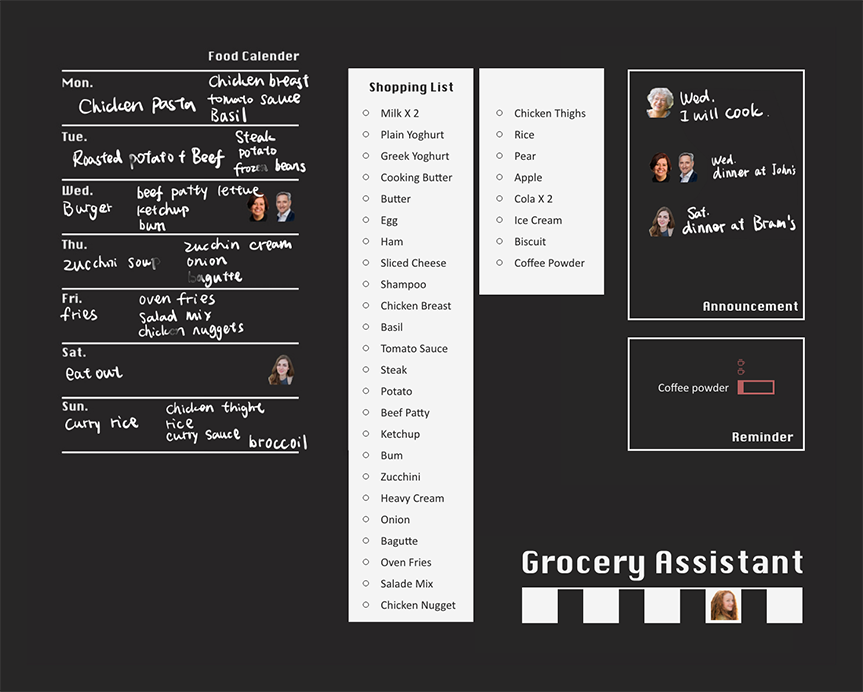 Food Calender
Mon.
Chicken Pasta
Chicken breast
tomato sauce
Basil
Tue.
Roasted potato + Beef
Steak
potato
frozen beans
Wed.
Burger
beef patty lettue
ketchup
bun
Thu.
zucchini soup
zucchin cream
onion
bagutte
Fri.
fries
oven fries
salad mix
chicken nuggets
Sat.
eat out
Sun.
Curry rice
chicken thighe
rice
curry sauce
broccoil
Shopping List
Milk X 2
Plain Yoghurt
Greek Yoghurt
Cooking Butter
Butter
Egg
Ham
Sliced Cheese
Shampoo
Chicken Breast
Basil
Tomato Sauce
Steak
Potato
Beef Patty
Ketchup
Bum
Zucchini
Heavy Cream
Onion
Bagutte
Oven Fries
Salade Mix
Chicken Nugget
Chicken Thighs
Rice
Pear
Apple
Cola X 2
Ice Cream
Biscuit
Coffee Powder
Wed.
I will cook.
Wed.
dinner at John's
Sat.
dinner at Bram's
Announcement
Coffee powder
Reminder
Grocery Assistant